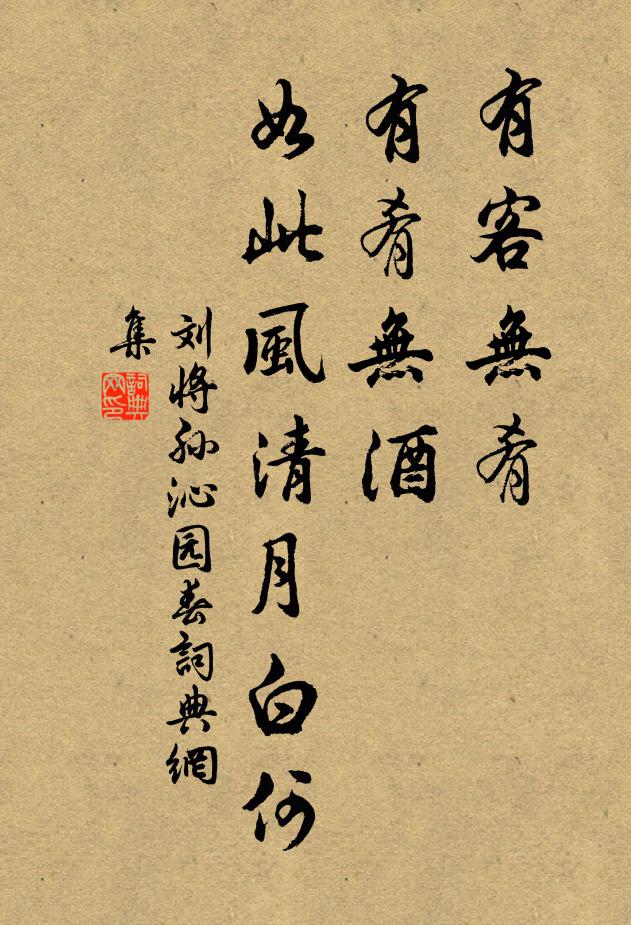 有客無肴
有肴無酒
如此風清月白何
刘將孙沁园春詞典網
集
詞典網印